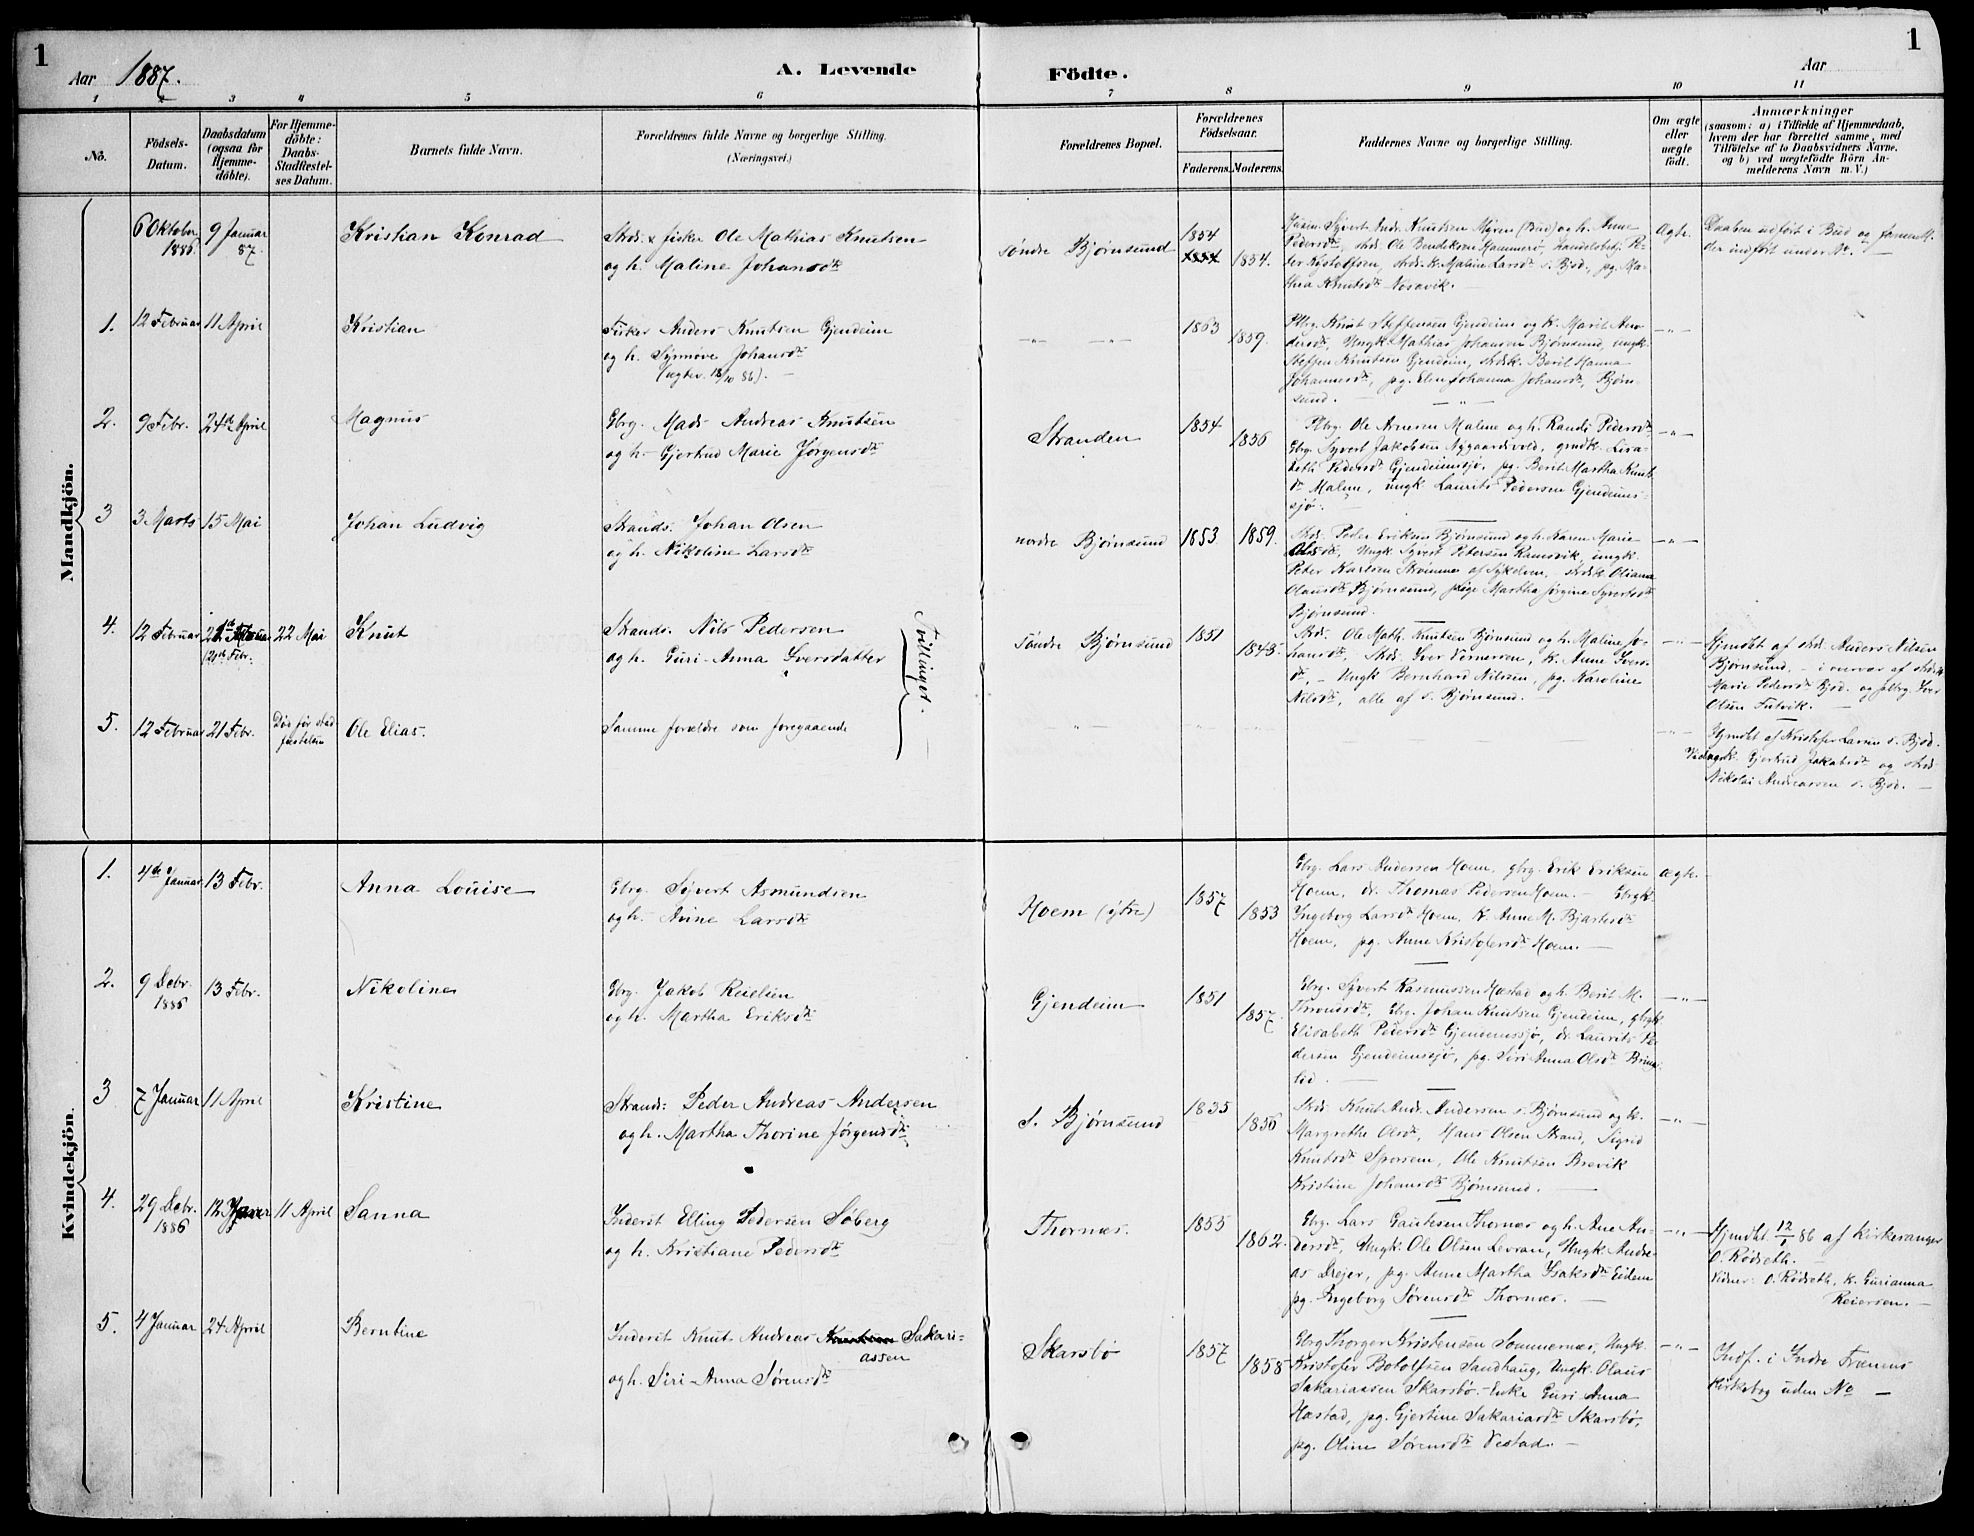 1
Aar 1887.
A. Levende Födte.
Aar
1
1 2 3 4 5 6 7 8 9 10 11
No.
Födsels-Datum.
Daabsdatum (ogsaa for Hjemme-döbte).
For Hjemme-döbte: Daabs-Stadfæstel-ses Datum.
Barnets fulde Navn.
Forældrenes fulde Navne og borgerlige Stilling. (Næringsvei.)
Forældrenes Bopæl.
Forældrenes Födselsaar.
Faderens. Moderens.
Faddernes Navne og borgerlige Stilling.
Om ægte eller uægte födt.
Anmærkninger
(saasom: a) i Tilfælde af Hjemmedaab,
hvem der har forrettet samme, med
Tilföielse af to Daabsvidners Navne.
og b) ved uægtefödte Börn An-
melderens Navn m. V.)
Mandkjön.
6 Oktober 1886. 9 Januar 87. Kristian Konrad
Strds. & fisker Ole Mathias Knutsen
og h. Maline Johansdtr
søndre Bjørnsund 1854 1854 1854.
Pedersdtr, strds. Ole Bendiksen Hammerø, handelsbetj. Pe-
thea Knutsdtr Nosavik.
Ægte.
Daaben udført i Bud og
der indført under No. —
1. 12 Februar 11 April Kristian
Fisker Anders Knutsen Gjendeim
og h. Synnøve Johansdtr
(ægtev. 18/10 86). —
—"— —"— 1863 1859.
Pbrg. Knut Steffensen Gjendeim og k. Marit An-
dersdtr, Ungk. Mathias Johansen Bjørnsund, ungk.
Steffen Knutsen Gjendeim, strdsk. Beril Hanna
Johannesdtr, pg. Elen Johanna Johansdtr, Bjørn-
sund. —
—"—
2. 9 Febr. 24th April Magnus
Gbrg. Mads Andreas Knutsen
og h. Gjertrud Marie Jørgensdtr
Stranden 1854 1856
Pbrg. Ole Arnesen Malene og h. Randi Pedersdtr
Gbrg. Syvert Jakobsen Nygaardsvold, grndk. Lisa-
beth Pedersdtr Gjendeimsjø, pg. Berit Martha Knuts-
dtr Malen, ungk. Laurits Pedersen Gjendeims-
sjø.
—"—
3 3 Marts 15 Mai Johan Ludvig
Strands: Johan Olsen
og h. Nikoline Larsdtr
nordre Bjørnsund 1853 1859.
Strds. Peder Eriksen Bjørnsund og h. Karen Marie
Olsdtr, Ungk. Syvert Petersen Ramsvik, ungk.
Peter Karlsen Strømme af Sykelven, strdsk. Oliana
Olausdtr Bjørnsund, pige Martha Jørgine Syvertsdtr
Bjørnsund.
—"—
4. 12 Februar 21 Februar (21th Febr. 22 Mai Knut
Strands: Nils Pedersen
og h. Guri-Anna Iversdatter
Tvillinger.
søndre Bjørnsund 1851 1845.
Strds. Ole Math. Knutsen Bjørnsund og h. Maline Jo-
hansdtr, Strds. Iver Vernersen, k. Anne Ivers-
dtr, — Ungk. Bernhard Nilssen, pg. Karoline
Nilsdtr, alle af s. Bjørnsund. —
—"—
Hjmdbt af strd. Anders Nilsen
Bjørnsund, — i nærvær af strdsk.
Marie Pedersdtr Bjsd. og pbrg. Iver
Olsen Tutvik. —
5. 12 Februar 21 Febr. Død før stad fæstelsen Ole Elias.
Samme forældre som foregaaende
Hjmdbt af Kristofer Larsen s. Bjsd.
Gjertrud Jakobsdtr og strds.
Nikolai Andreassen s. Bjsd. —
Kvindekjön.
1. 4th Januar 13 Febr. Anna Louise
Gbrg. Syvert Asmundsen
og h. Anne Larsdtr
Hoem (ytre) 1857 1853
Gbrg. Lars Andersen Hoem, gbrg. Erik Eriksen
Hoem, dr. Thomas Pedersen Hoem. — Gbrgk.
Ingeborg Larsdtr Hoem, k. Anne M. Bjartesdtr
Hoem, pg. Anne Kristofersdtr Hoem. —
Ægte.
2. 9 Debr. 1886 13 Febr. Nikoline
Gbrg. Jakob Reielsen
og h. Martha Eriksdtr
Gjendeim 1851 1857.
Gbrg. Syvert Rasmussen Hæstad og h. Berit M.
Thronsdtr, Gbrg. Johan Knutsen Gjendeim, gbrgk.
Elisabeth Pedersdtr Gjendeimssjø, dr. Laurits Pe-
dersen Gjendeimssjø, pg. Siri Anna Olsdtr
—"—
3 7 Januar 11 April Kristine
Strands: Peder Andreas Andersen
og h. Martha Thorine Jørgensdtr
S. Bjørnsund 1835 1856
Strds. Knut Andr. Andersen s. Bjørnsund og h.
Margrethe Olsdtr, Hans Olsen Strand, Sigrid
Knutsdtr Sporsem, Ole Knutsen Brevik
Kristine Johansdtr Bjørnsund. —
—"—
4. 29 Debr. 1886 12 Januar 11 April Sanna
Inderst Elling Pedersen Søberg
og h. Kristiane Pedersdtr
Thornæs. 1855 1862.
Gbrg. Lars Gautesen Thornæs og h. Ane An-
dersdtr, Ungk. Ole Olsen Levran, Ungk. Andre-
as Drejer, pg. Anne Martha Isaksdtr Eidem
pg. Ingeborg Sørensdtr Thornæs. —
—"—
Hjmdbt. 12/1 86 af kirkesanger
O. Rödseth. —
Vidner: O. Rödseth, k. Gurianna
Reiersen. —
5. 4 Januar 24 April Berntine
Inderst Knut Andreas Sakari-
assen
og h. Siri-Anna Sørensdtr
Skarsbø 1857 1858
Gbrg Thorger Kristensen Sommernæs, Ungk.
Kristofer Botolfsen Sandhaug, Ungk. Olaus
Sakariassen Skarsbø. — Enke Guri Anna
Hæstad, pg. Gjertine Sakariasdtr Skarsbø,
pg. Oline Sørensdtr Vestad. —
—"—
Indf. i Indre Frænens
kirkebog uden No —